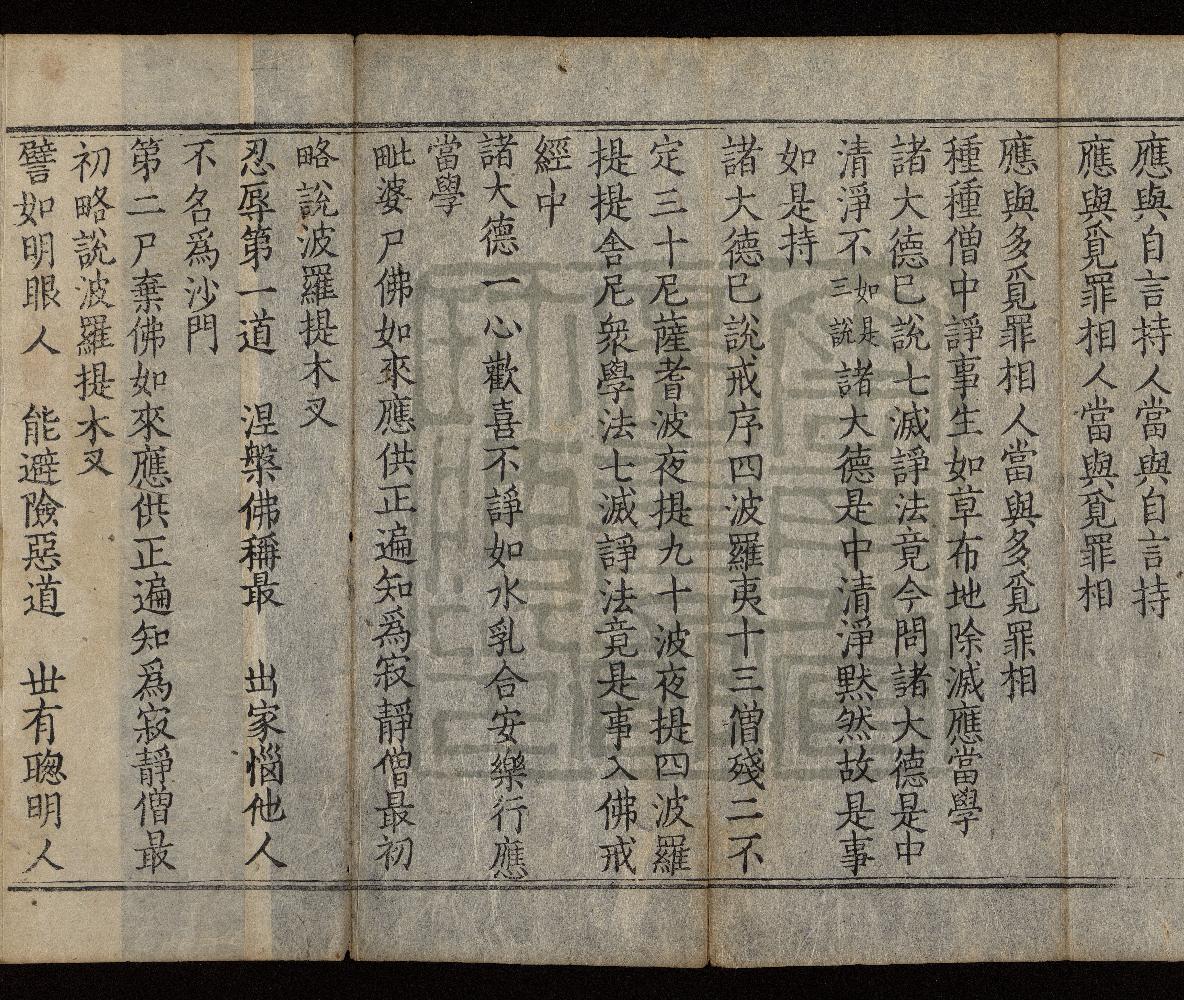 應與自言持人當與自言持
應與覓罪相人當與覓罪相
應與多覓罪相人當與多覓罪相
種種僧中諍事生如草布地除滅應當學
諸大德已說七滅諍法竟今問諸大德是中
清淨不如是三說諸大德是中清淨默然故是事
如是持
諸大德已說戒序四波羅夷十三僧殘二不
定三十尼薩耆波夜提九十波夜提四波羅
提提舍尼衆學法七滅諍法竟是事入佛戒
經中
諸大德一心歡喜不諍如水乳合安樂行應
當學
毗婆尸佛如來應供正遍知爲寂靜僧最初
略說波羅提木叉
忍辱第一道 涅槃佛稱最 出家惱他人
不名爲沙門
第二尸棄佛如來應供正遍知爲寂靜僧最
初略說波羅提木叉
譬如明眼人 能避險惡道 世有聰明人